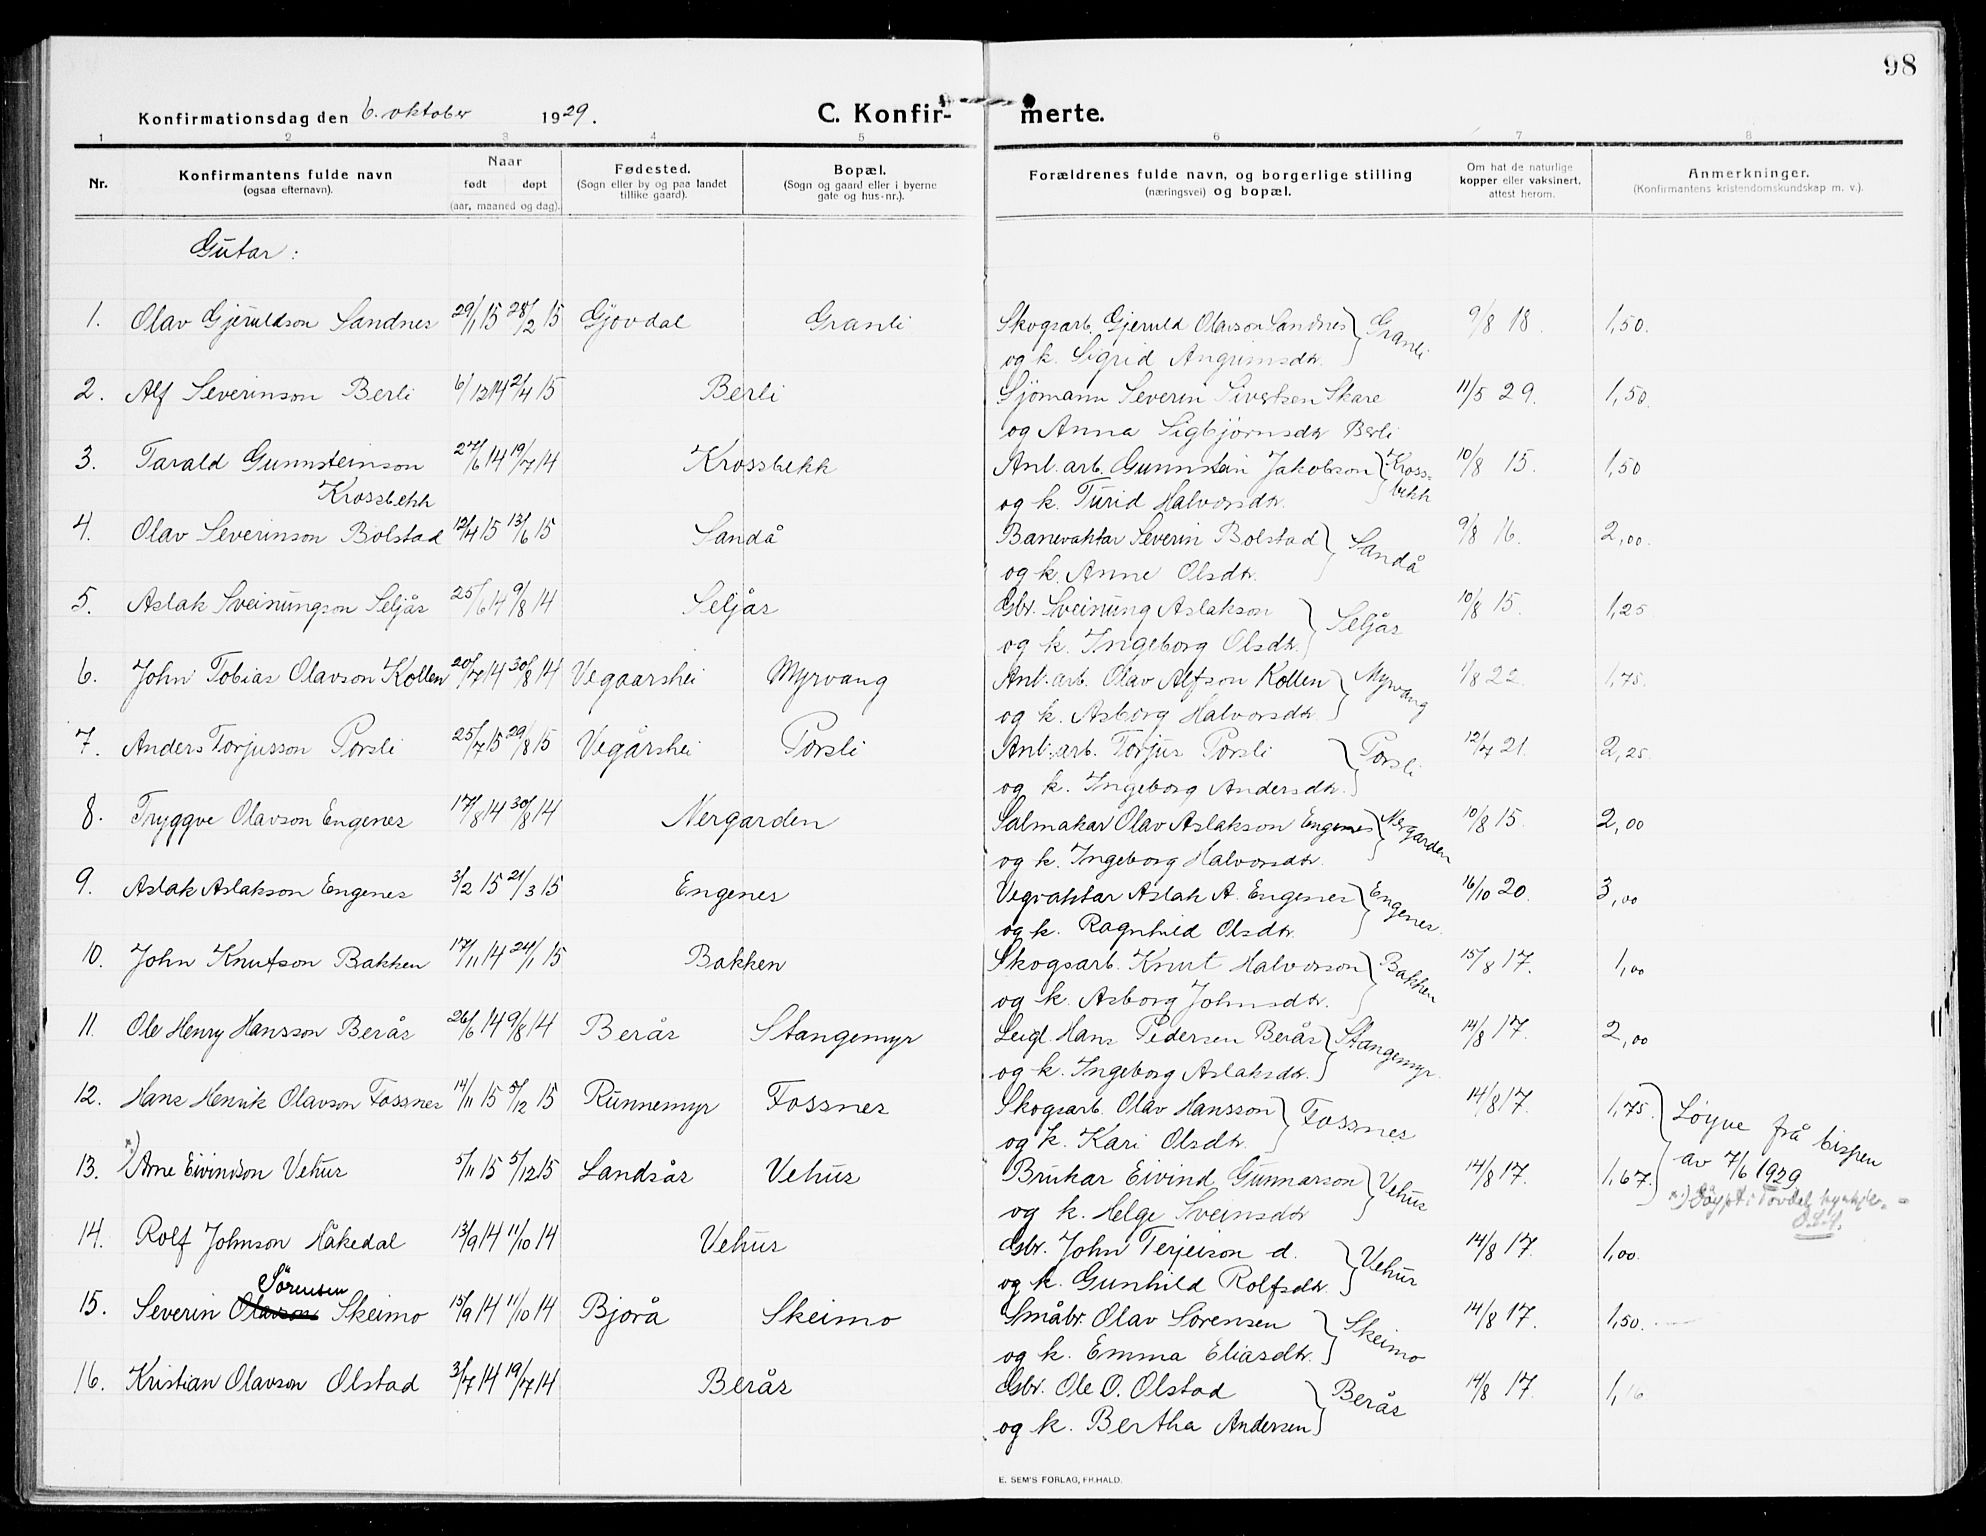 98
Konfirmationsdag den 6. oktober 1929.
C. Konfirmerte.
1 2 3 4 5 6 7 8
Nr.
Konfirmantens fulde navn
(ogsaa efternavn).
Naar
født døpt
(aar, maaned og dag).
Fødested.
(Sogn eller by og paa landet
tillike gaard).
Bopæl.
(Sogn og gaard eller i byerne
gate og hus-nr.).
Forældrenes fulde navn, og borgerlige stilling
(næringsvei) og bopæl.
Om hat de naturlige
kopper eller vaksinert,
attest herom.
Anmerkninger.
(Konfirmantens kristendomskundskap m. v.).
Gutar:
1. Olav Gjeruldson Sandnes 29/1 15 28/2 15 Gjövdal Granli Skogsarb. Gjeruld Olavson Sandnes } Granli 9/8 18. 1,50.
og k. Sigrid Angrimsdtr.
2. Alf Severinson Berli 6/12 14 2/4 15 Berli Sjömann Severin Sivertsen Skare 11/5 29. 1,50.
og Anna Sigbjørnsdtr Berli
3. Tarald Gunnsteinson 27/6 14 19/7 14 Krossbekk Anl. arb. Gunnstein Jakobson } Kross- 10/8 15. 1,50
Krossbekk og k. Turid Halvorsdtr. bekk
4. Olav Severinson Bolstad 12/4 15 13/6 15 Sandå Banevaktar Severin Bolstad } Sandå 9/8 16. 2,00.
og k. Anne Olsdtr.
5. Aslak Sveinungson Seljås 25/6 14 9/8 14 Seljås Gbr. Sveinung Aslakson } Seljås 10/8 15. 1,25
og k. Ingeborg Olsdtr.
6. John Tobias Olavson Kollen 20/7 14 30/8 14 Vegaarshei Myrvang Anl. arb. Olav Alfson Kollen } Myrvang 1/8 22. 1,75.
og k. Asborg Halvorsdtr.
7. Anders Torjusson Porsli 25/7 15 29/8 15 Vegårshei Porsli Anl. arb. Torjus Porsli } Porsli 12/7 21. 2,25.
og k. Ingeborg Andersdtr.
8. Tryggve Olavson Engenes 17/8 14 30/8 14 Nergarden Salmakar Olav Aslakson Engenes } Nergarden 10/8 15. 2,00
og k. Ingeborg Halvorsdtr.
9. Aslak Aslakson Engenes 3/2 15 21/3 15 Engenes Vegvaktar Aslak A. Engenes } Engenes. 16/10 20. 3,00
og k. Ragnhild Olsdtr.
10. John Knutson Bakken 17/11 14 24/1 15 Bakken Skogsarb. Knut Halvorson } Bakken 15/8 17. 1,00
og k. Asborg Johnsdtr.
11. Ole Henry Hansson Berås 26/6 14 9/8 14 Berås Stangemyr Leigl. Hans Pedersen Berås } Stangemyr. 14/8 17. 2,00
og k. Ingeborg Aslaksdtr.
12. Hans Henrik Olavson Fossnes 14/11 15 5/12 15 Runnemyr Fossnes Skogsarb. Olav Hansson } Fossnes 14/8 17. 1,75. } Løyve frå bispen
og k. Kari Olsdtr. av 7/6 1929
13. x) Arne Eivindson Vehus 5/11 15 5/12 15 Landsås Vehus Brukar Eivind Gunnarson } Vehus 14/8 17. 1,67.
og k. Helge Sveinsdtr x) Döypt i Tovdal kyrkje.
14. Rolf Johnson Håkedal 13/9 14 11/10 14 Vehus Gbr. John Terjeison d. } Vehus 14/8 17. 1,00.
og k. Gunhild Rolfsdtr.
Sörensen
15. Severin Olavson Skeimo 15/9 14 11/10 14 Bjorå Skeimo Småbr. Olav Sørensen } Skeimo 14/8 17. 1,50.
og k. Emma Eliasdtr.
16. Kristian Olavson Olstad 3/7 14 19/7 14 Berås Gbr. Ole O. Olstad } Berås 14/8 17. 1,16
og k. Bertha Andersen
E. SEM'S FORLAG, FR.HALD.